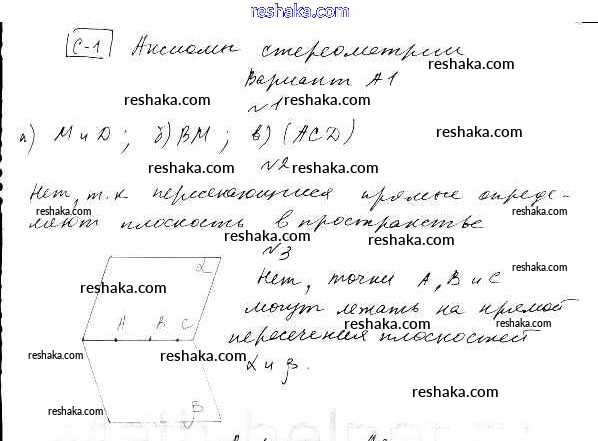 www.reshaka.com
С-1 Аксиомы стереометрии
reshaka.com
Вариант А1
reshaka.com reshaka.com
№1
а) М и D; б) ВМ; в) (АСD)
reshaka.com
reshaka.com reshaka.com
№2
Нет, т.к пересекающиеся прямые опреде-
reshaka.com reshaka.com reshaka.com
ляют плоскость в пространстве
reshaka.com
№3
α
Нет, точки А, В и С
reshaka.com reshaka.com
А В С
могут лежать на прямой
reshaka.com reshaka.com
пересечения плоскостей
reshaka.com reshaka.com
α и β.
reshaka.com
β
reshaka.com reshaka.com